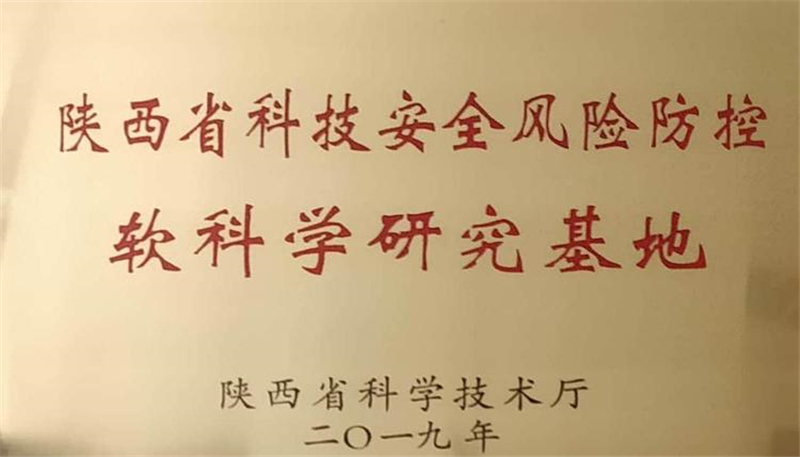 陕西省科技安全风险防控
软科学研究基地
陕西省科学技术厅
二〇一九年